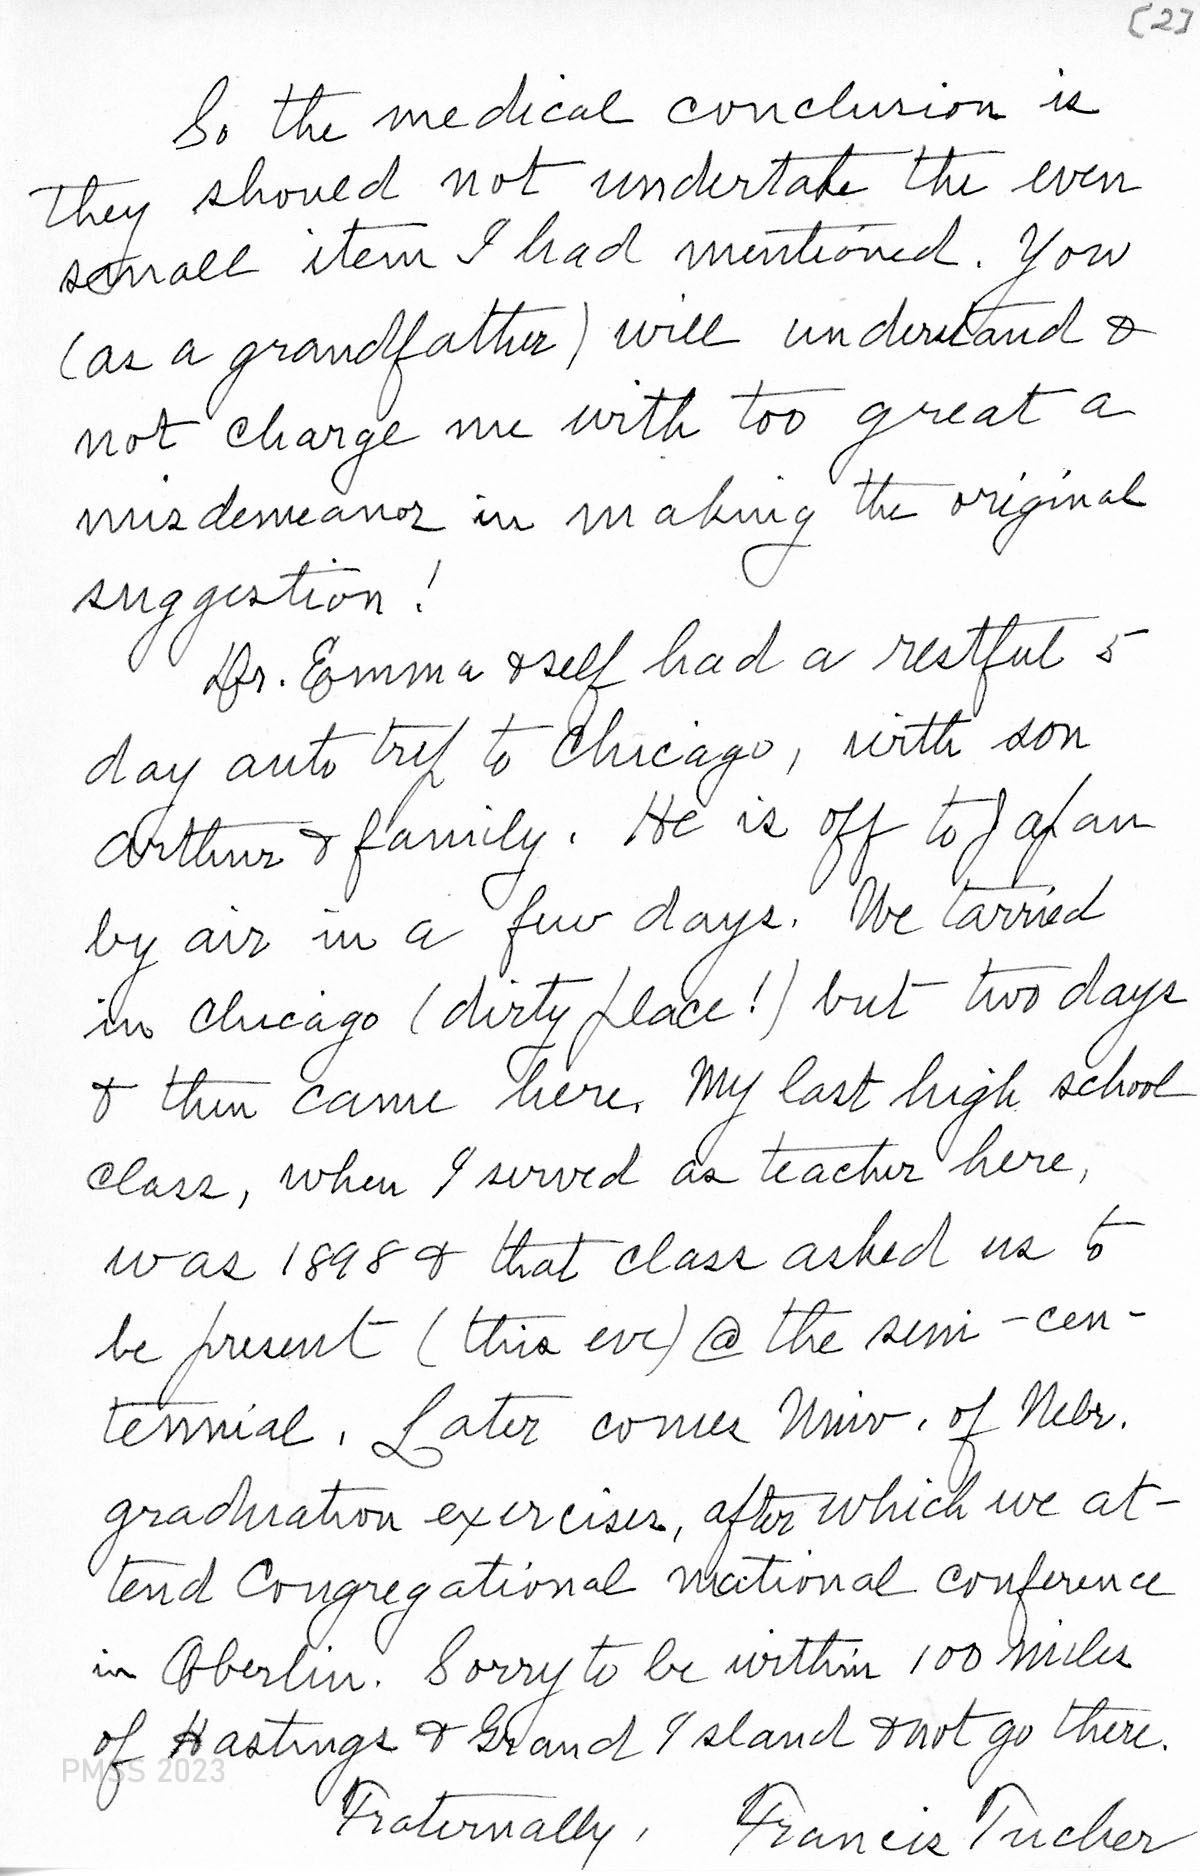 [2]
So the medical conclusion is
they should not undertake the even
small item I had mentioned. You
(as a grandfather) will understand &
not charge me with too great a
misdemeanor in making the original
suggestion!
Dr. Emma & self had a restful 5
day auto trip to Chicago, with son
Arthur & family. He is off to Japan
by air in a few days. We tarried
in Chicago (dirty place!) but two days
& then came here. My last high school
class, when I served as teacher here,
was 1898 & that class asked us to
be present (this eve) @ the semi-cen-
tennial. Later comes Univ. of Nebr.
graduation exercises, after which we at-
tend Congregational national conference
in Oberlin. Sorry to be within 100 miles
of Hastings & Grand Island & not go there.
PMSS 2023
Fraternally, Francis Tucker